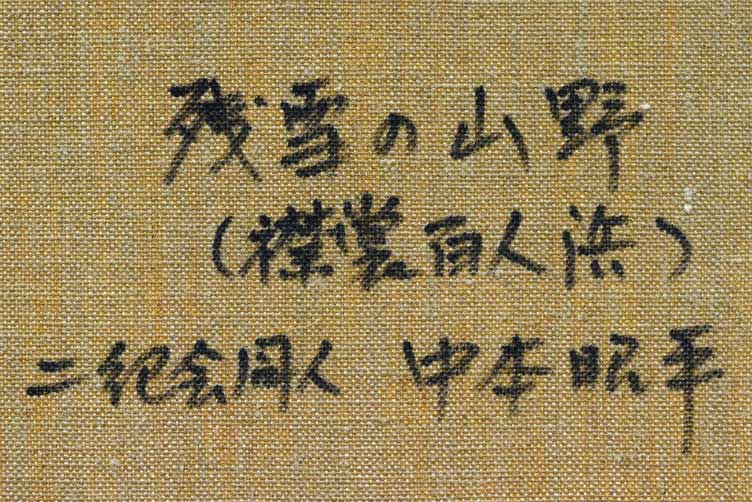 残雪の山野
(襟裳百人浜)
二紀会同人 中本昭平